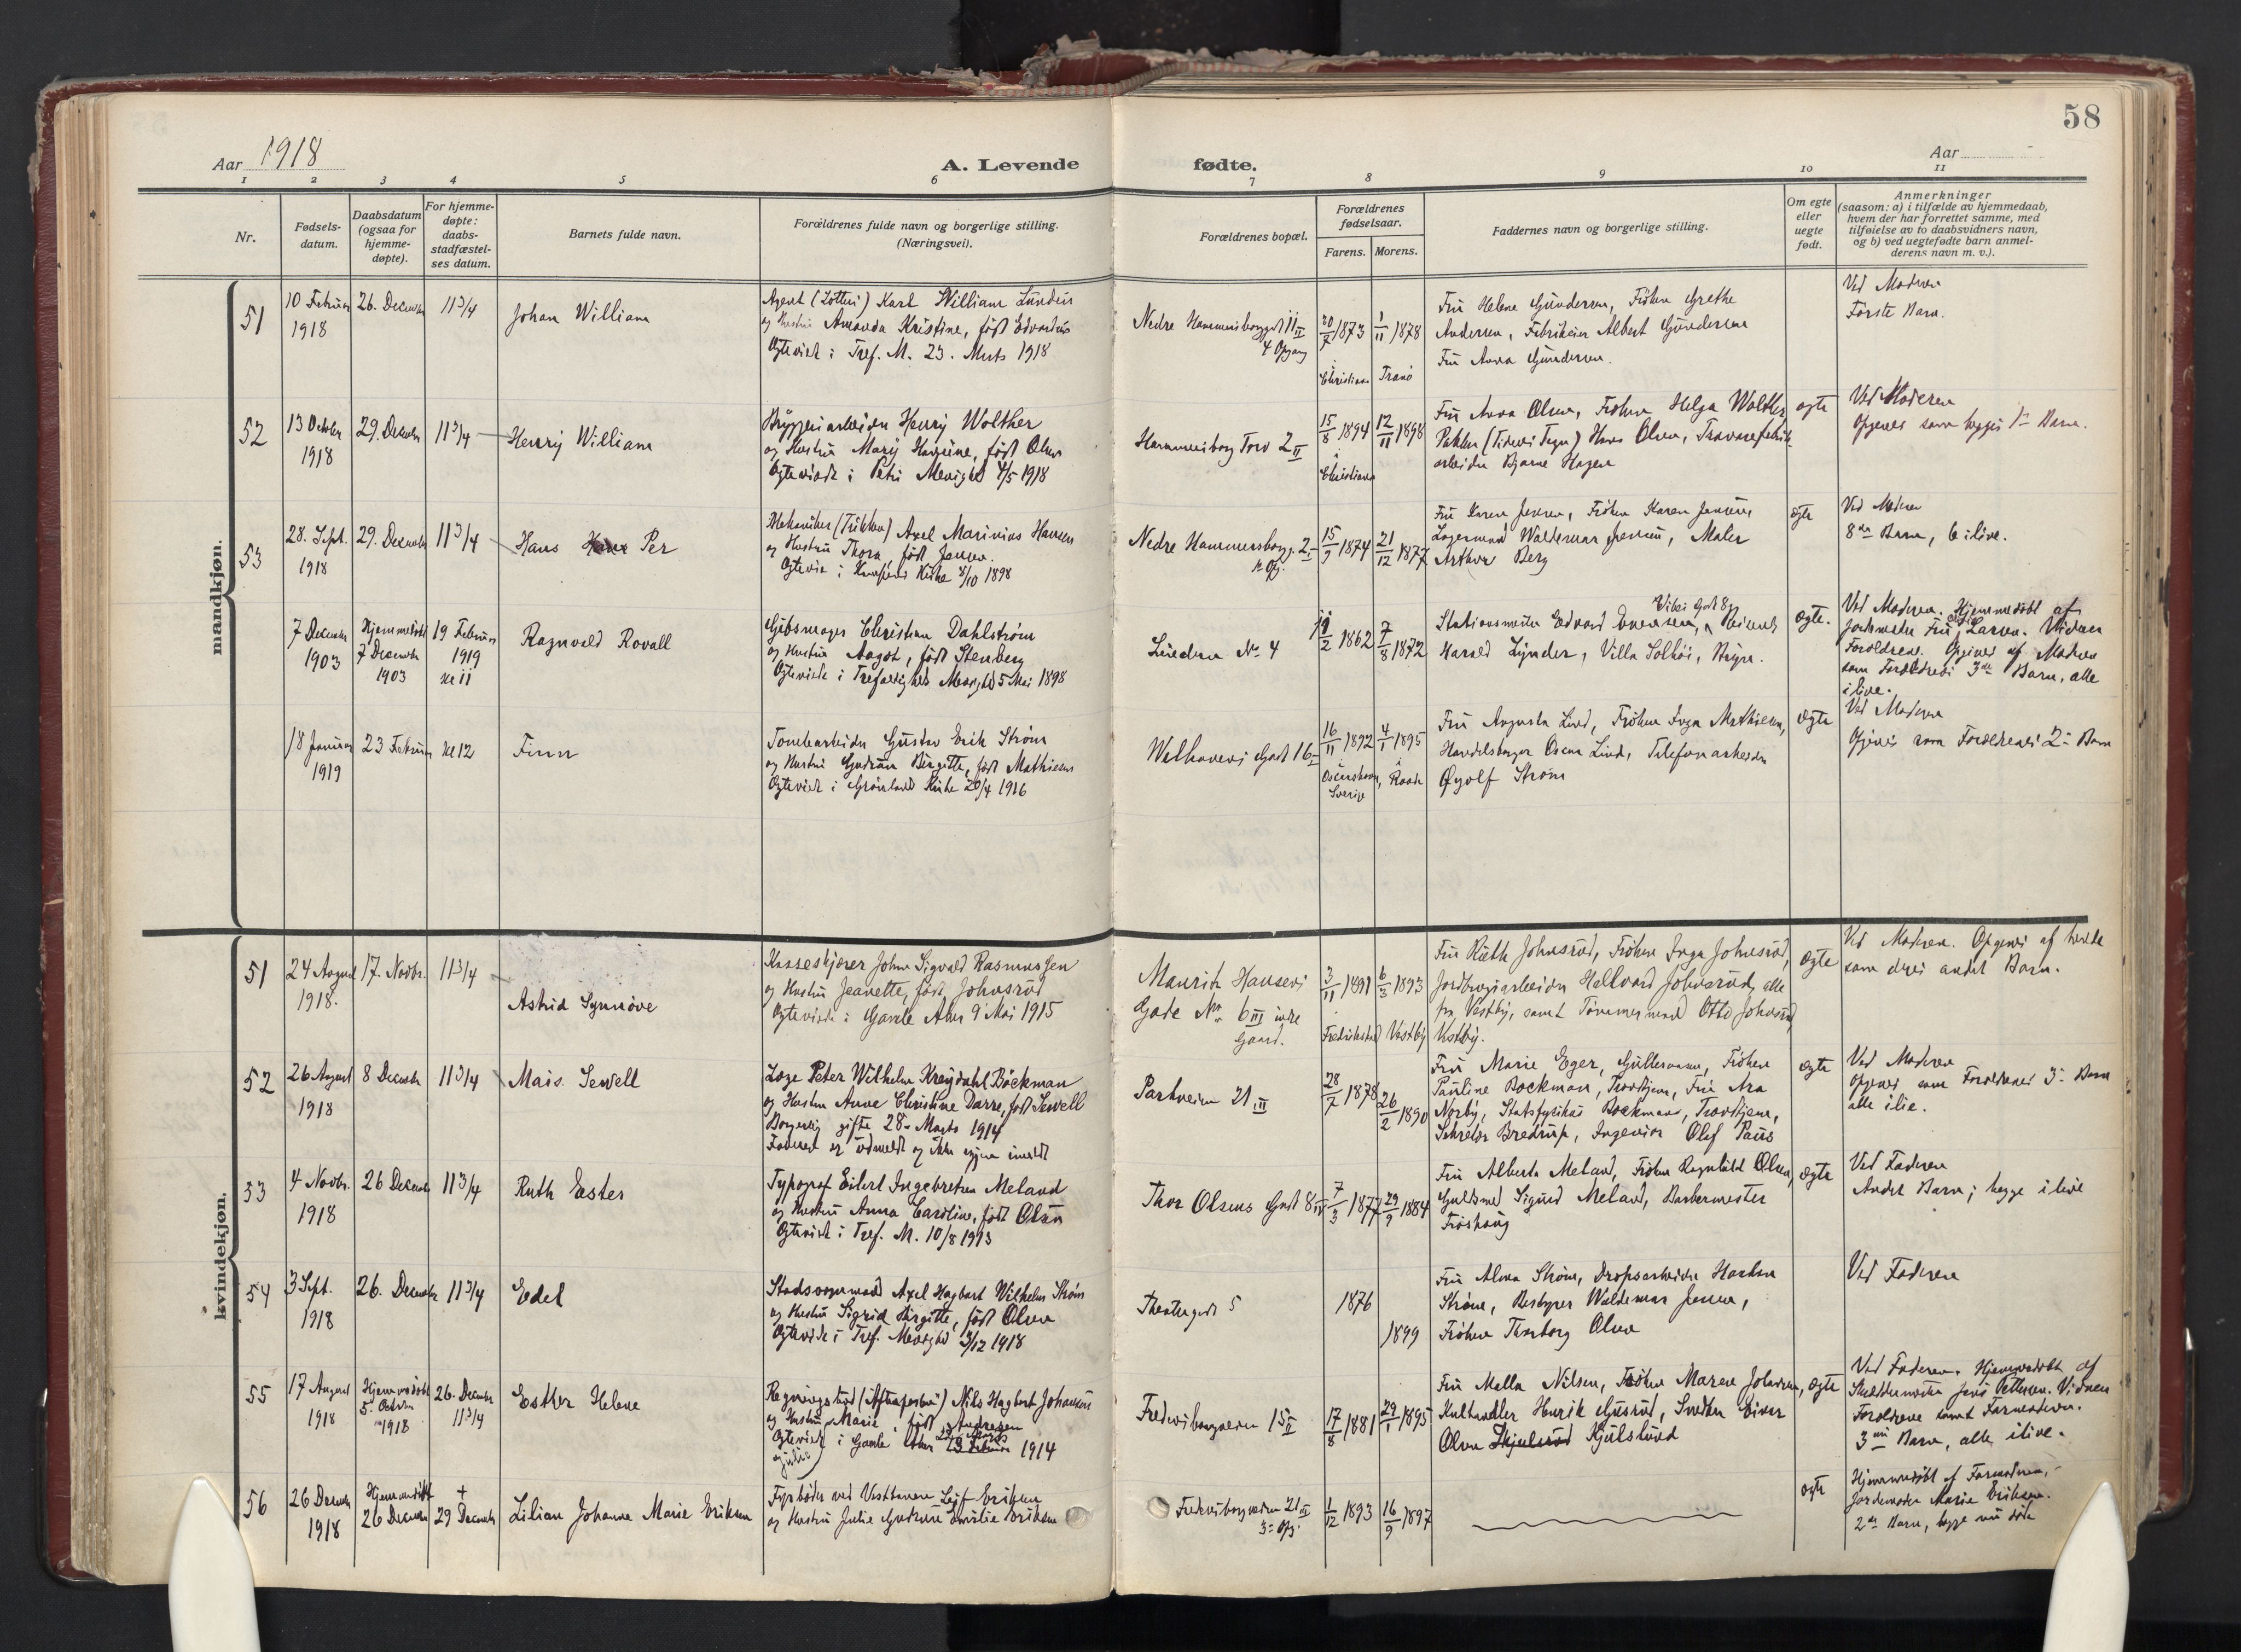 58
Aar 1918
A. Levende
fødte.
Aar
1 2 3 4 5 6 7 8 9 10 11
Nr.
Fødsels-
datum.
Daabsdatum
(ogsaa for
hjemme-
døpte).
For hjemme-
døpte:
daabs-
stadfæstel-
ses datum.
Barnets fulde navn.
Forældrenes fulde navn og borgerlige stilling.
(Næringsvei).
Forældrenes bopæl.
Forældrenes
fødselsaar.
Farens. Morens.
Faddernes navn og borgerlige stilling.
Om egte
eller
uegte
født.
Anmerkninger
(saasom: a) i tilfælde av hjemmedaab,
hvem der har forrettet samme, med
tilføielse av to daabsvidners navn,
og b) ved uegtefødte barn anmel-
derens navn m. v.).
mandkjøn.
51
10 Februar
1918
26. December
11 3/4
Johan William
Agent (Lotteri) Karl William
og Hustru Amanda Kristine, født
Egteviet i Tref. M. 23. Marts 1918
Nedre Hammersborggt 11 II
4 Opgang
20/7 1873
1/11 1878
Christiania Tranö
Fru Helene Gundersen, Fröken Grethe
Andersen, Albert Gundersen
Fru Anna Gundersen.
Ved Moderen
Første Barn.
52
13 October
1918
29. Decbr
11 3/4
Henry William
Bryggeriarbeider Henry Wolther
og Hustru Mary, født Olsen
Egteviede i Petri Menighed 4/5 1918
Hammersborg Torv 2 II
15/8 1894
12/11 1898
Christiania
Fru Anna Olsen, Frøken Helga Wolther
Pakker Hans Olsen,
arbeider Bjarne Hagen
egte
Ved Moderen
Opgives som begges 1ste Barn.
53
28. Sept.
1918
29. December
11 3/4
Hans Per
Mekaniker Axel Marinius Hansen
og Hustru Thora, født Jensen.
Egtevie i Kirke 8/10 1898
Nedre Hammersborgg. 2
1ste Opg.
15/9 1874
21/12 1877
Fru Karen Jensen, Fröken Karen Jensen,
Lagermand Waldemar Jensen, Maler
Arthur Berg
egte
Ved Moderen
8de Barn, 6 ilive.
7 December
1903
Hjemmedøbt
7 December
1903
19 Februar
1919
kl 11
Ragnvald Rovall
Gibsmager Christian Dahlström
og Hustru Aagot, født Stenberg
Egteviede i Trefoldigheds Menighed 5 Mai 1898
Lunden No 4
1862
7/8 1872
Vibes Gade 8
Stationsmester Edvard
Harald Lynder, Villa Solhöi, Bryn.
egte.
Ved Moderen. Hjemmedøbt af
Jordmoder Fru Larsen. Vidner
Forældrene. Opgives af Moderen
som Forældrenes 3die Barn, alle
ilive.
18 Januar
1919
23 Februar
kl 12
Finn
Tomtearbeider Gustav Erik Ström
og Hustru Gudrun Birgitte, født Mathisen
Egteviede i Grønlands Kirke 20/4 1916
Welhavens Gade 16
16/11 1892
4/1 1895
Sverige
Raade
Fru Augusta Lind, Fröken Inga Mathisen,
Handelsborger Oscar Lind, Telefonarbeider
Øyolf Ström
egte
Ved Moderen
Opgives som Forældrenes 2det Barn
kvindekjøn.
51
24 August
1918.
17. Novbr.
11 3/4
Astrid Synnöve
Kasseskjører Johan Sigvald Rasmussen
og Hustru Jeanette, født Johnsrud
Egteviede i Gamle Aker 9 Mai 1915
Mauritz Hansens
Gade No 6 III indre
Gaard.
3/11 1891
6/3 1893
Fredrikstad Vestby
Fru Ruth Johnsrud, Fröken Inga Johnsrud,
Jordbrugsarbeider Hallvard Johnsrud, alle
fra Vestby, samt Tömmermand Otto Johnsrud,
Vestby.
egte
Ved Moderen. Opgives af hende
som deres andet Barn.
52
26 August
1918
8 December
11 3/4
Mais Sewell
Læge Peter Wilhelm Kreydahl Böckman
og Hustru Anna Christine Darre, født Sewell
Borgerlig gifte 28. Marts 1914
Faderen er udmeldt og ikke igjen indmeldt
Parkveien 21 III
28/7 1878
26/2 1890
Fru Marie Eger, Gullermoen, Fröken
Pauline Bockman, Trondhjem, Fru Ara
Norby, Statsfysikus Bockmann, Trondhjem,
Sekretær Bredrup, Ingeniör Olef Paus
egte
Ved Moderen
Opgives som Forældrenes 3die Barn
alle ilive.
53
4 Novbr.
1918
26 December
11 3/4
Ruth Ester
Typograf Eilert Ingebretsen Meland
og Hustru Anna Caroline, født Olsen
Egteviede i Tref. M. 10/8 1913
Thor Olsens Gade 8 IV
7/3 1877
29/9 1884
Fru Alberta Meland, Fröken Ragnhild Olsen,
Guldsmed Sigurd Meland, Barbermester
Fröshaug
egte
Ved Faderen
Andet Barn; begge ilive
54
3 Sept.
1918
26. December
11 3/4
Edel
Axel Hagbart Wilhelm Ström
og Hustru Sigrid Birgitte, født Olsen
Egteviede i Tref. Menighed 3/12 1918
Theatergade 5
1876
1899
Fru Alma Ström, Dropsarbeider Haakon
Ström, Bestyrer Waldemar Jensen,
Fröken Thorborg Olsen
Ved Faderen
55
17 August
1918
Hjemmedøbt
5. October
1918
26. December
11 3/4
Esther Helene
Regningsbud (Aftenposten) Nils Hagbart Johansen
og Hustru Marie Julie, født Andresen
Egteviede i Gamle Aker 1914
Fredensborgveien 15 II
17/8 1881
29/1 1895
Fru Malla Nilsen, Fröken Maren Johansen,
Kulhandler Henrik Gusrud, Snedker Einar
Olsen Kjulslund
egte
Ved Faderen. Hjemmedøbt af
Jens Pettersen. Vidner
Forældrene samt Farmoderen.
3die Barn, alle ilive.
56
26 December
1918
Hjemmedøbt
26 December
+
29 December
Lilian Johanne Marie Eriksen
Fyrbøder ved Leif Eriksen
og Hustru Julie Gudrun Emilie Eriksen
Fredensborgveien 21 III
3die Opg.
1/12 1893
16/9 1897
egte
Hjemmedøbt af Farmoderen,
Jordemoder Marie Eriksen.
2det Barn, begge nu døde